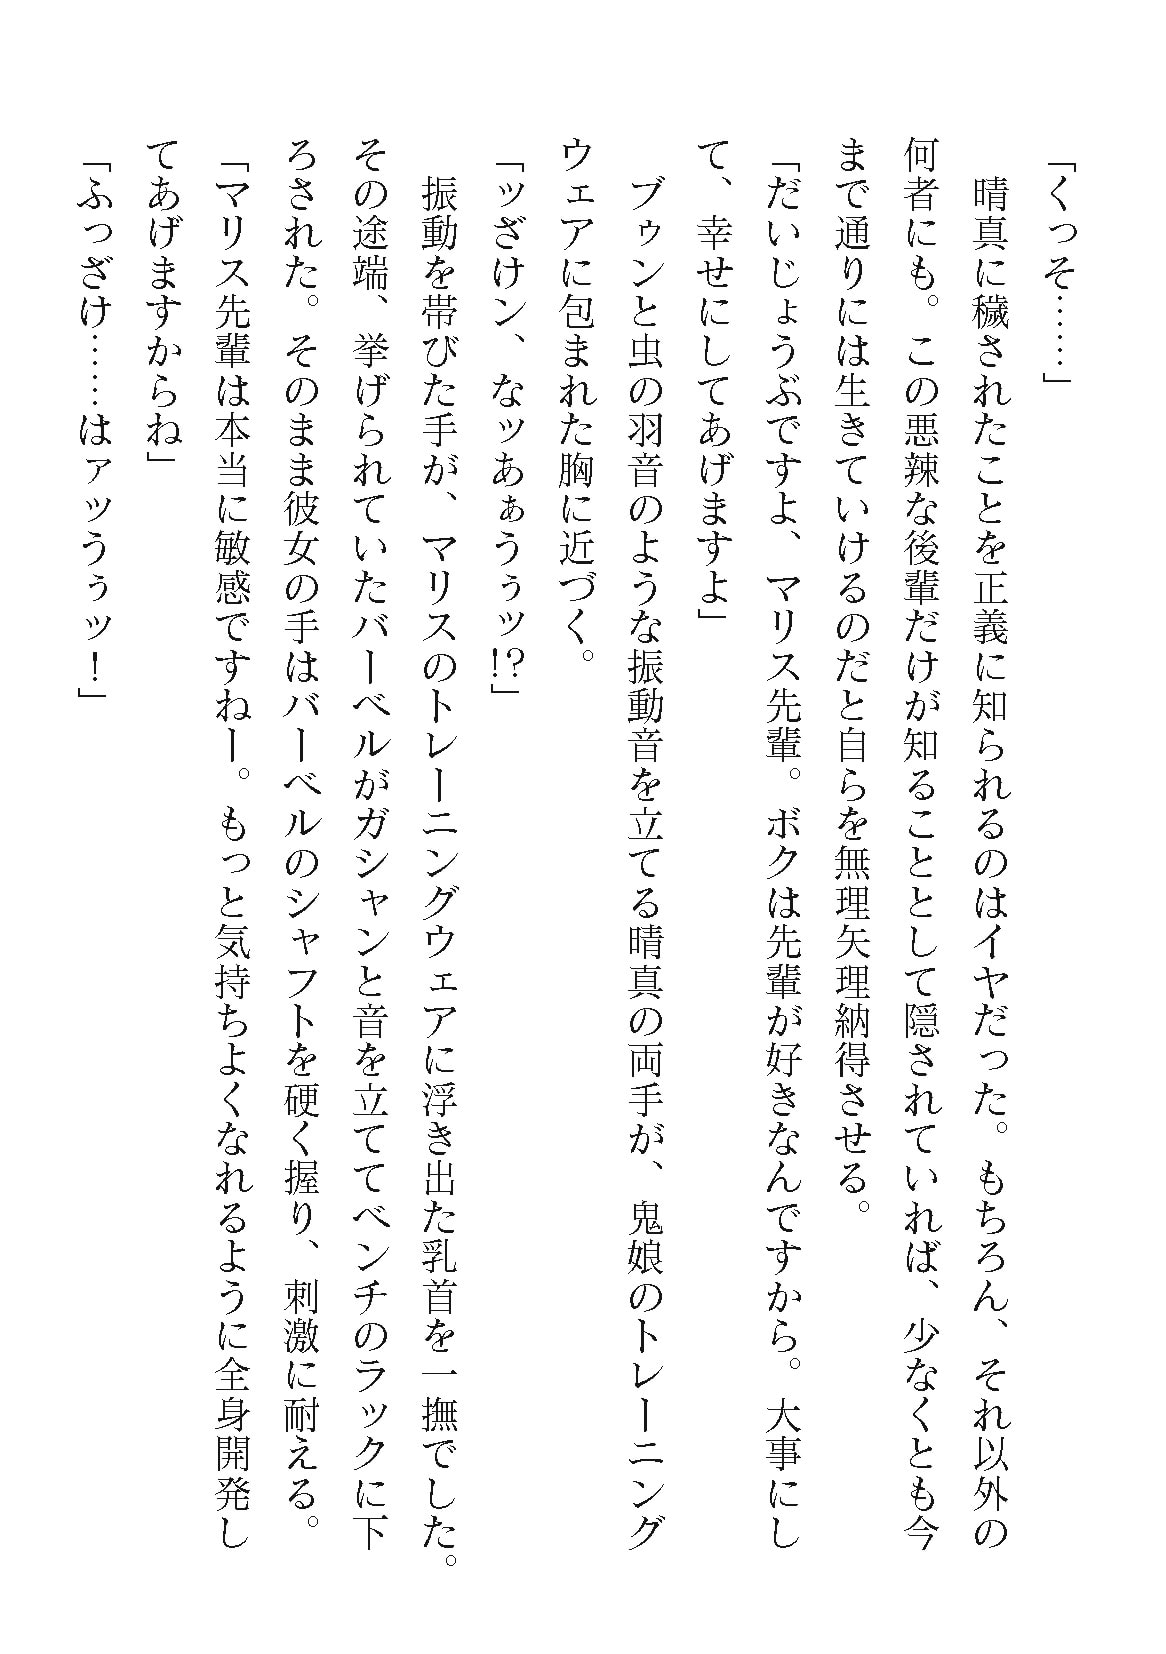 「くっそ……」
　晴真に穢されたことを正義に知られるのはイヤだった。もちろん、それ以外の
何者にも。この悪辣な後輩だけが知ることとして隠されていれば、少なくとも今
まで通りには生きていけるのだと自らを無理矢理納得させる。
「だいじょうぶですよ、マリス先輩。ボクは先輩が好きなんですから。大事にし
て、幸せにしてあげますよ」
　ブゥンと虫の羽音のような振動音を立てる晴真の両手が、鬼娘のトレーニング
ウェアに包まれた胸に近づく。
「ッざけン、なッあぁうぅッ!?」
　振動を帯びた手が、マリスのトレーニングウェアに浮き出た乳首を一撫でした。
その途端、挙げられていたバーベルがガシャンと音を立ててベンチのラックに下
ろされた。そのまま彼女の手はバーベルのシャフトを硬く握り、刺激に耐える。
「マリス先輩は本当に敏感ですねー。もっと気持ちよくなれるように全身開発し
てあげますからね」
「ふっざけ……はァッうぅッ！」